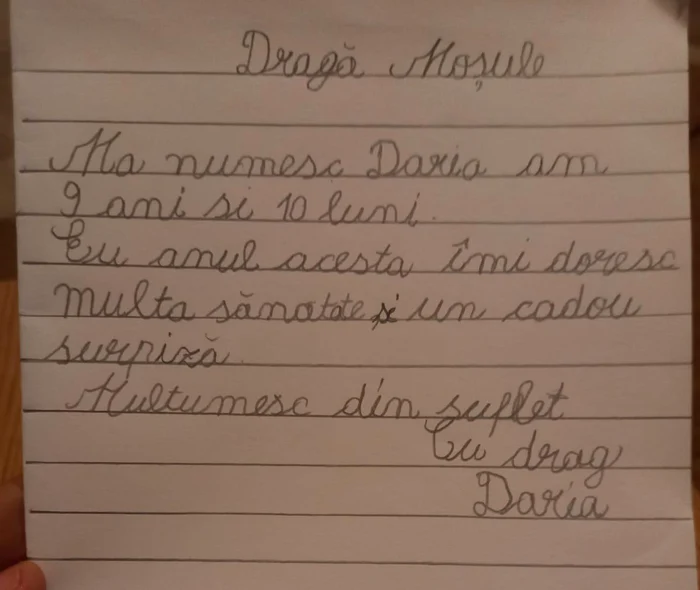 Dragă Moșule
Ma numesc Daria am
9 ani si 10 luni.
Eu anul acesta îmi doresc
multa sănatate și un cadou
surpiză.
Multumesc din suflet
Cu drag
Daria